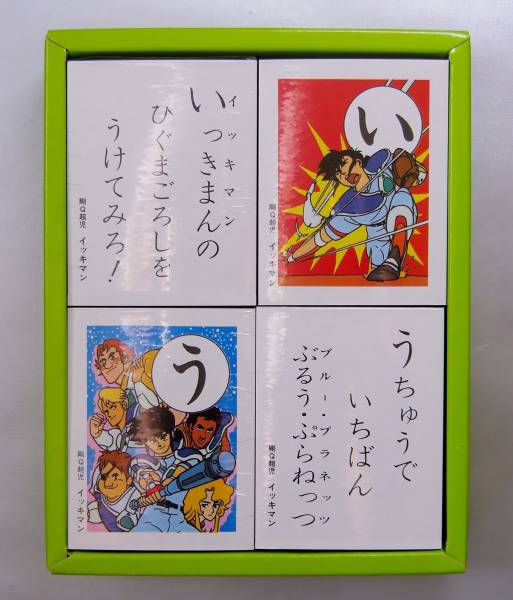 いっきまんの
イッキマン
ひぐまごろしを
うけてみろ!
剛Q超児 イッキマン
い
剛Q超児 イッキマン
う
剛Q超児 イッキマン
うちゅうで
いちばん
ぶるう・ぷらねっつ
ブルー・プラネッツ
剛Q超児 イッキマン